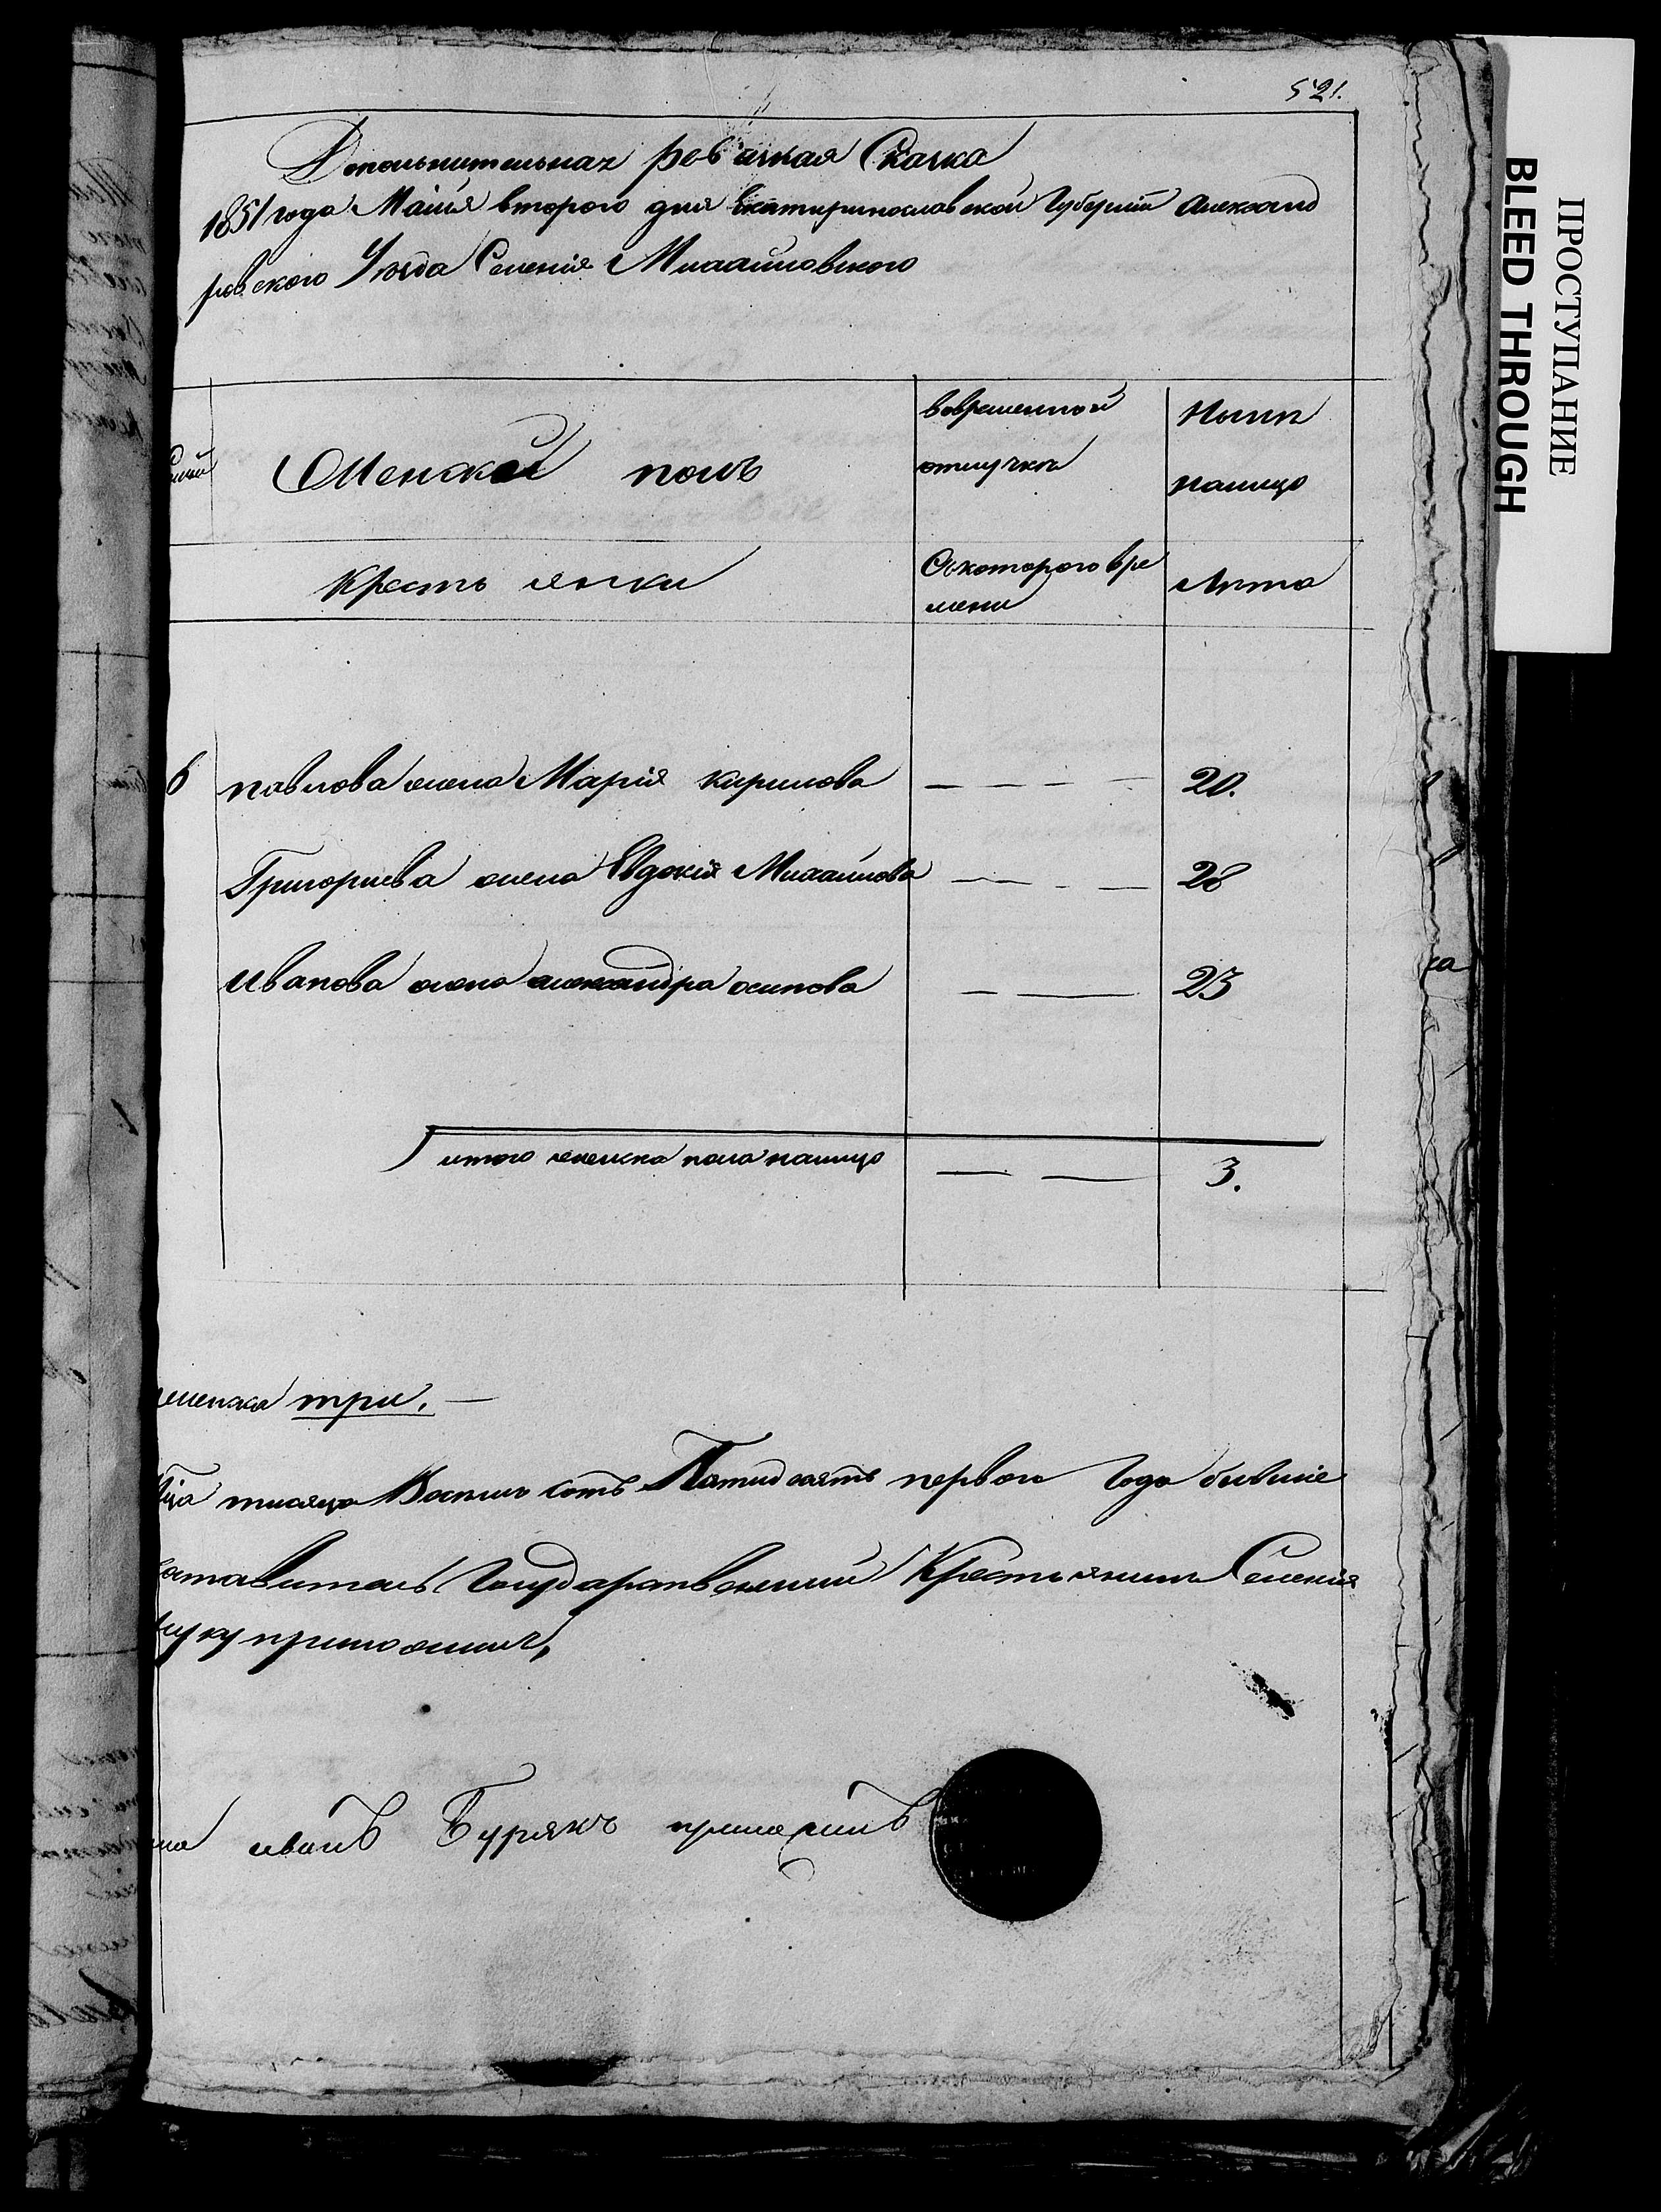 521.
Дополнительная ревизкая Скаска
1851 года Маия второго дня Екатиринославской Губернии Александ
ровского Уезда Селенiя Михайловского
Женской полъ
вовременной
отлучки
Ныне
налицо
Крестьянки
Скоторого вре
мени
Лета
6 павлова жена Марiя кирилова — — — — 20.
Григориева жена Евдокiя Михайлова — — - — 28
Иванова жена александра осипова — — 23
итого женска пола налицо — — 3.
женска три. —
тисяча Восимь сотъ Пятидесятъ первого Года бившiе
Государственний Крестьянинъ Селенiя
руку приложилъ,
иванъ Бурякъ приложилъ
ПРОСТУПАНИЕ
BLEED THROUGH